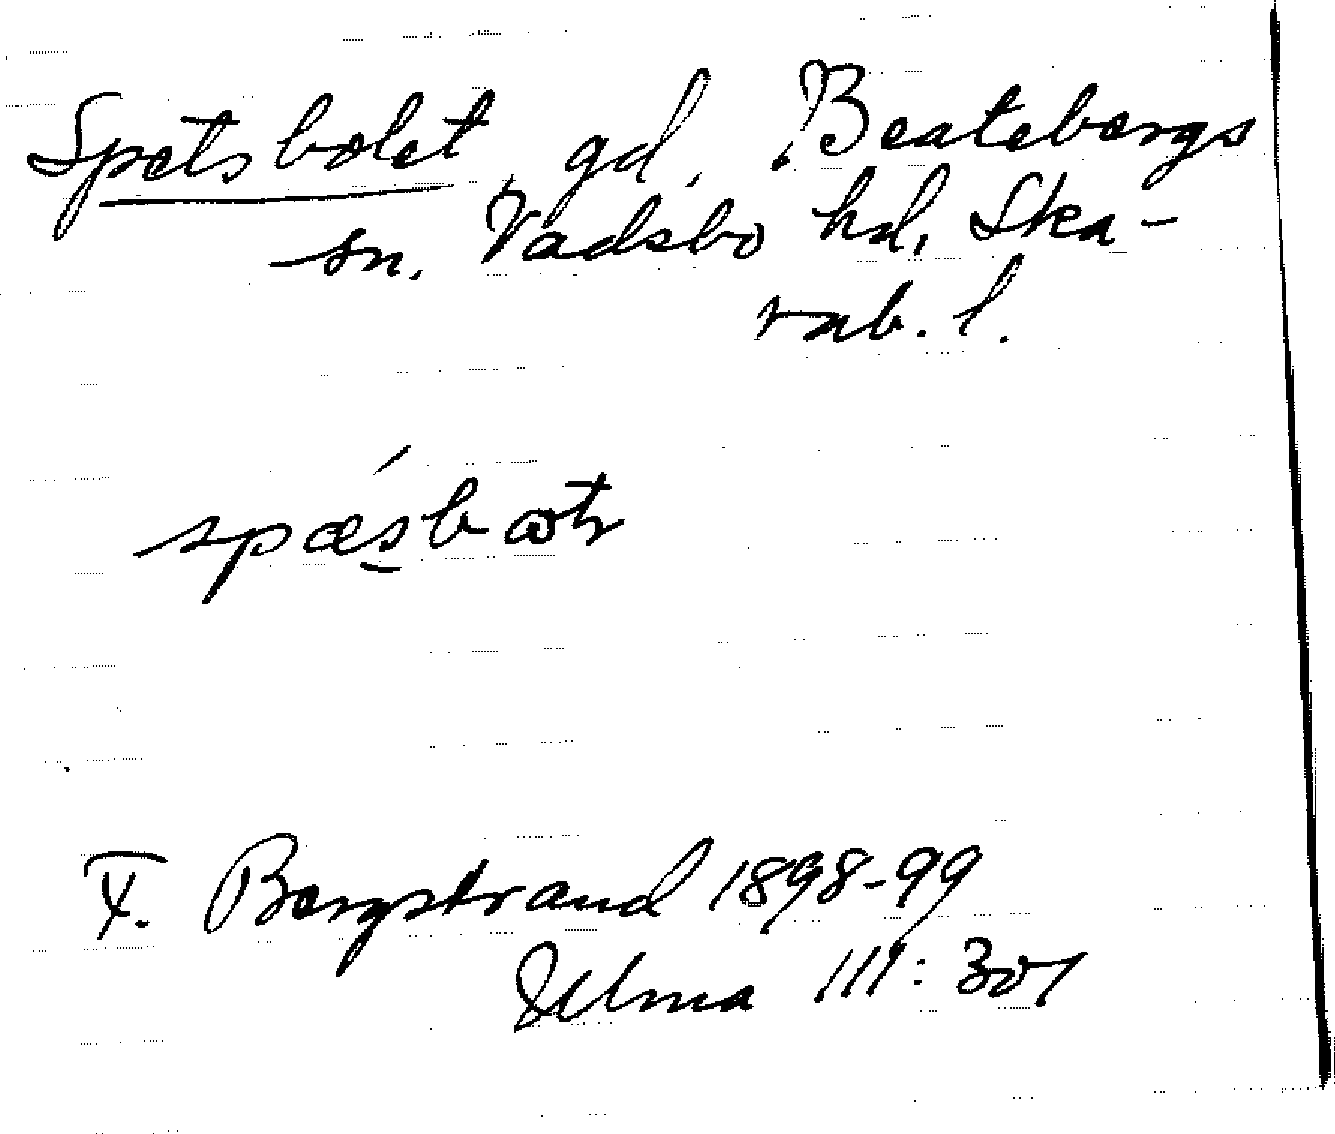 Spetsbolet, gd, Beatebergs
sn. Vadsbo hd, Ska-
rab. l.
V. Bergstrand 1898-99
Ulma 111: 301